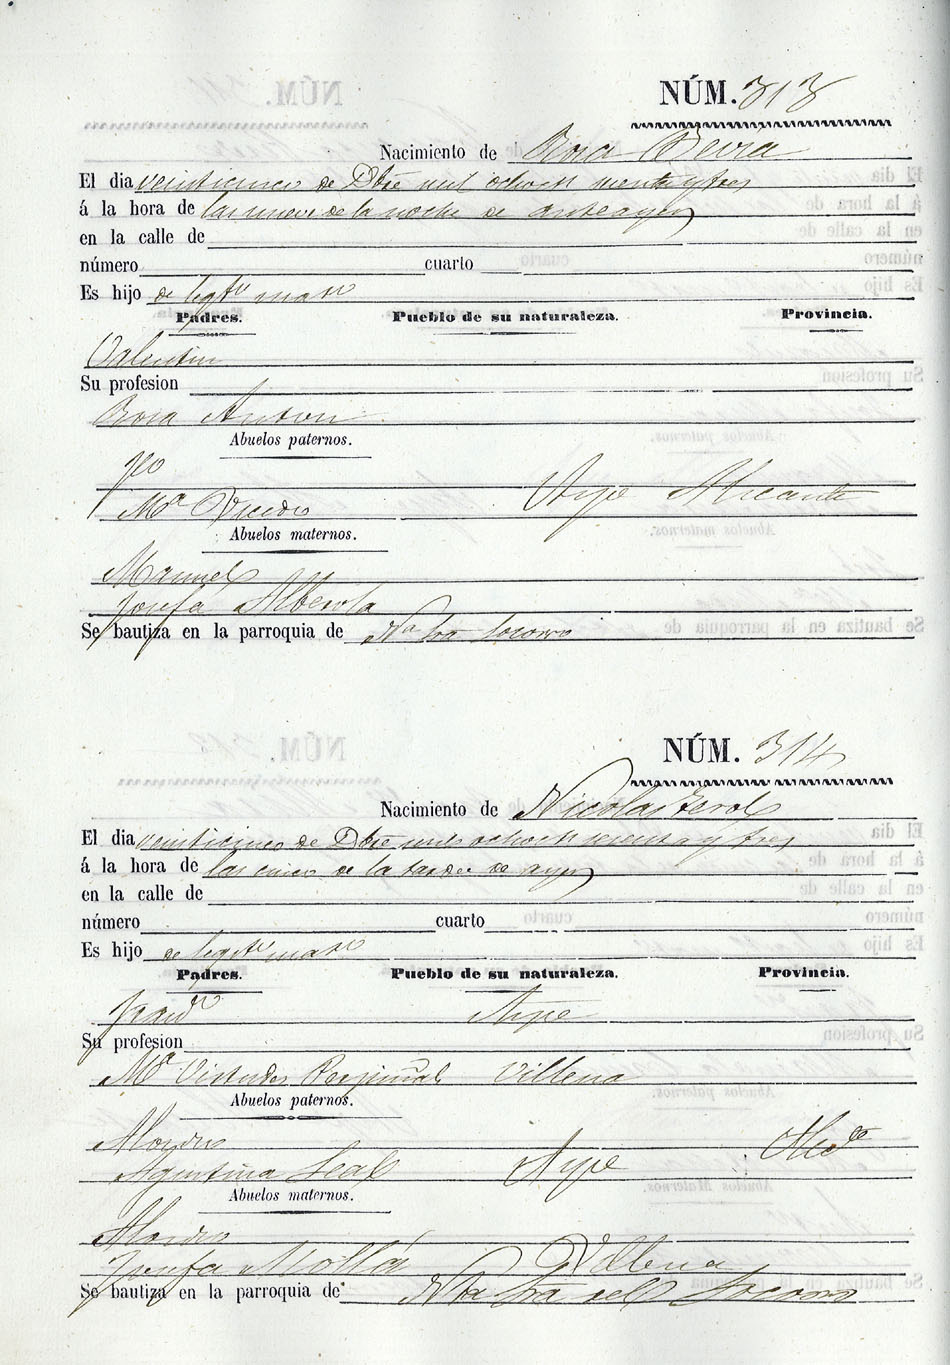 NÚM. 313
Nacimiento de Rosa Beira
El dia veinticinco de Dbre mil ochoc.s senta y tres
á la hora de las nueve de la noche de anteayer
en la calle de
número cuarto
Es hijo de legtº matº
Padres. Pueblo de su naturaleza. Provincia.
Valentin
Su profesion
Rosa Anton
Abuelos paternos.
Mª Vicedo Aspe Alicante
Abuelos maternos.
Manuel
Josefa Alberola
Se bautiza en la parroquia de Nª Sra Socorro
NÚM. 314
Nacimiento de Nicolas Erol
El dia veinticinco de Dbre mil ochoc.s sesenta y tres
á la hora de las cinco de la tarde de ayer
en la calle de
número cuarto
Es hijo de legtº matº
Padres. Pueblo de su naturaleza. Provincia.
Franº Aspe
Su profesion
Mª Virtudes Perpiñal Villena
Abuelos paternos.
Alonso
Agustina Leal Aspe Alicte
Abuelos maternos.
Alonso
Josefa Mollá Villena
Se bautiza en la parroquia de Nta Sra del Socorro